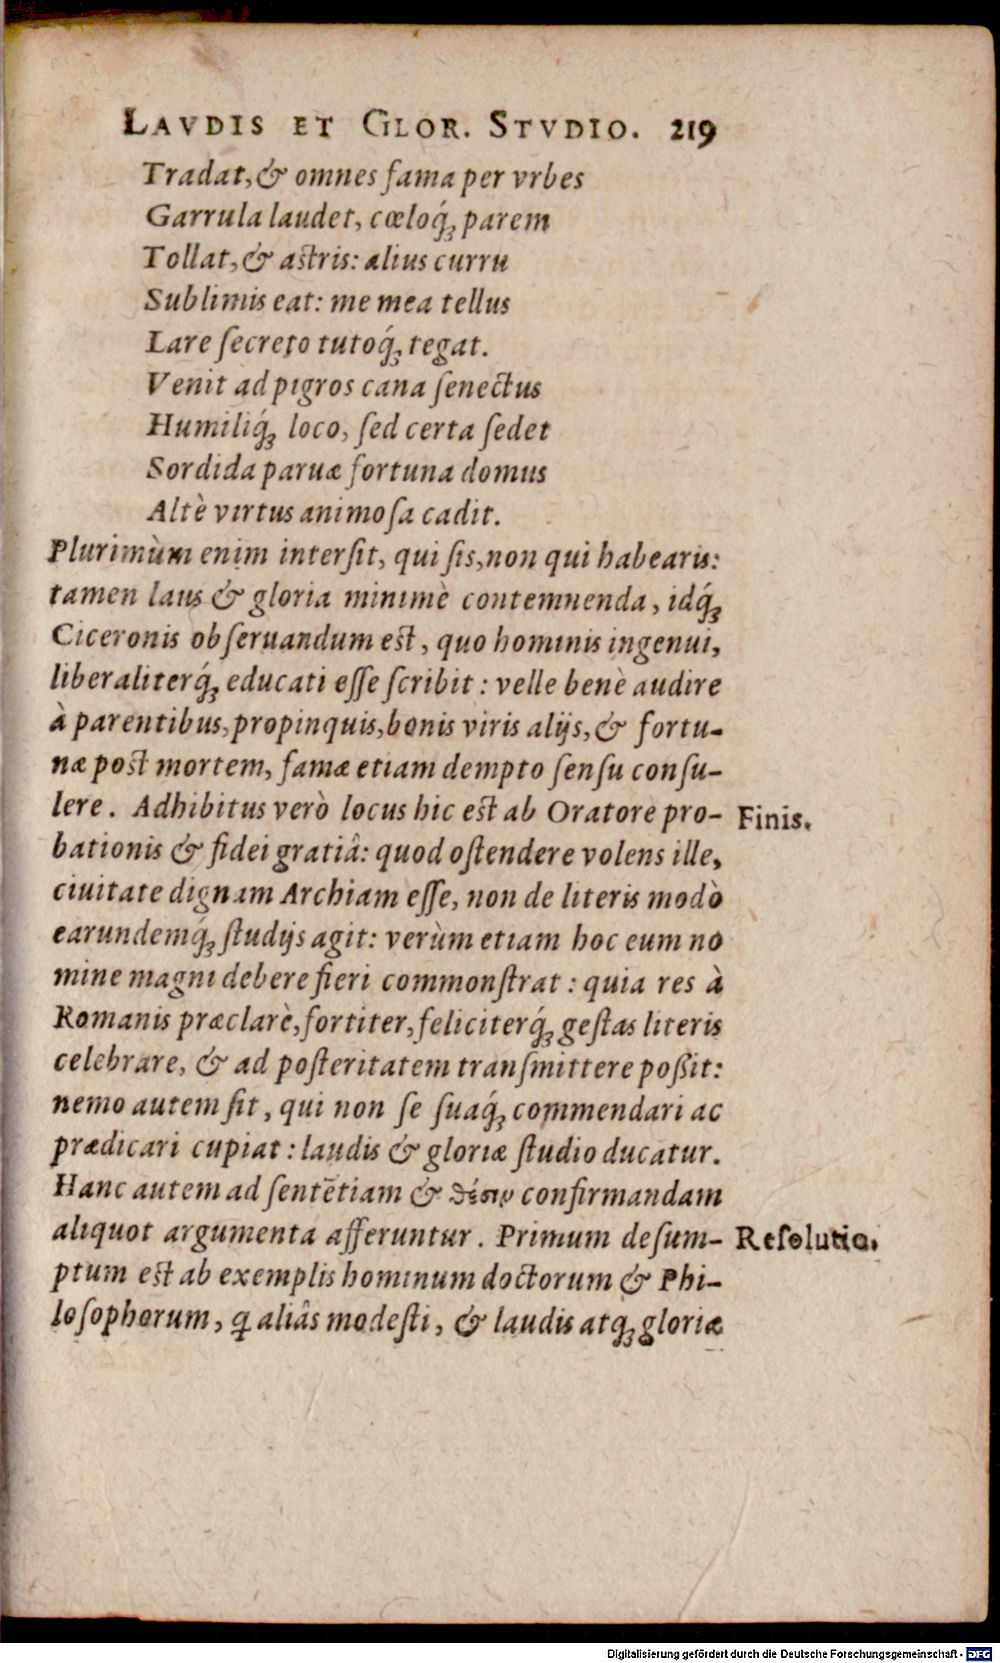 LAVDIS ET GLOR. STVDIO. 219
Tradat, & omnes fama per vrbes
Garrula laudet, cœloq́ꝫ parem
Tollat, & astris: alius curru
Sublimis eat: me mea tellus
Lare ſecreto tutoq́ꝫ tegat.
Venit ad pigros cana ſenectus
Humiliq́ꝫ loco, ſed certa ſedet
Sordida paruæ fortuna domus
Altè virtus animoſa cadit.
Plurimùm enim interſit, qui ſis, non qui habearis:
tamen laus & gloria minimè contemnenda, idq́ꝫ
Ciceronis obſeruandum est, quo hominis ingenui,
liberaliterq́ꝫ educati eſſe ſcribit: velle benè audire
à parentibus, propinquis, bonis viris alijs, & fortu-
næ post mortem, famæ etiam dempto ſenſu conſu-
lere. Adhibitus verò locus hic est ab Oratore pro-
Finis.
bationis & fidei gratiâ: quod oſtendere volens ille,
ciuitate dignam Archiam eſſe, non de literis modò
earundemq́ꝫ ſtudijs agit: verùm etiam hoc eum no
mine magni debere fieri commonſtrat: quia res à
Romanis præclarè, fortiter, feliciterq́ꝫ geſtas literis
celebrare, & ad poſteritatem tranſmittere poßit:
nemo autem ſit, qui non ſe ſuaq́ꝫ commendari ac
prædicari cupiat: laudis & gloriæ ſtudio ducatur.
Hanc autem ad ſentētiam & θέσιν confirmandam
aliquot argumenta afferuntur. Primum deſum-
Reſolutio.
ptum est ab exemplis hominum doctorum & Phi-
loſophorum, ꝗ aliâs modeſti, & laudis atqꝫ gloriæ
Digitalisierung gefördert durch die Deutsche Forschungsgemeinschaft - DFG